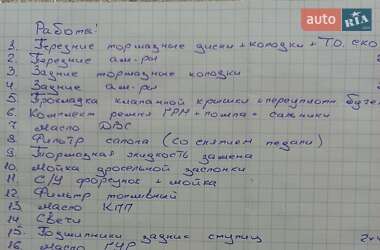 auto RIA.com
Работа:
1. Передние тормазные диски + колодки + ТО. ско
2. Передние ам-ры
3. Задние тормазные колодки
4. Задние ам-ры
5. Прокладка клапанной крышки
6. Комплект ремня ГРМ + помпа + сальники
7. Масло ДВС
8. Фильтр салона (со снятием педали)
9. Тормозная жидкость замена
10. Мойка дросельной заслонки
11. С/У форсунок + мойка
12. Фильтр топливный
13. Масло КПП
14. Свечи
15. Подшипники задние ступиц
16 Масло ГУР